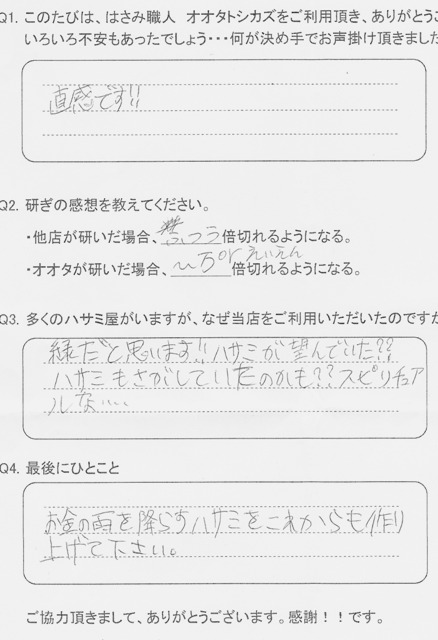 Q1. このたびは、はさみ職人 オオタトシカズをご利用頂き、ありがとうご
いろいろ不安もあったでしょう・・・何が決め手でお声掛け頂きました
直感です!!
Q2. 研ぎの感想を教えてください。
・他店が研いだ場合、ふつう倍切れるようになる。
えいえん
・オオタが研いだ場合、1万or倍切れるようになる。
Q3. 多くのハサミ屋がいますが、なぜ当店をご利用いただいたのですか
縁だと思います!!ハサミが望んでいた??
ハサミもさがしていたのかも??スピリチュア
ルな、、、
Q4. 最後にひとこと
お金の雨を降らすハサミをこれからも作り
上げて下さい。
ご協力頂きまして、ありがとうございます。感謝！！です。